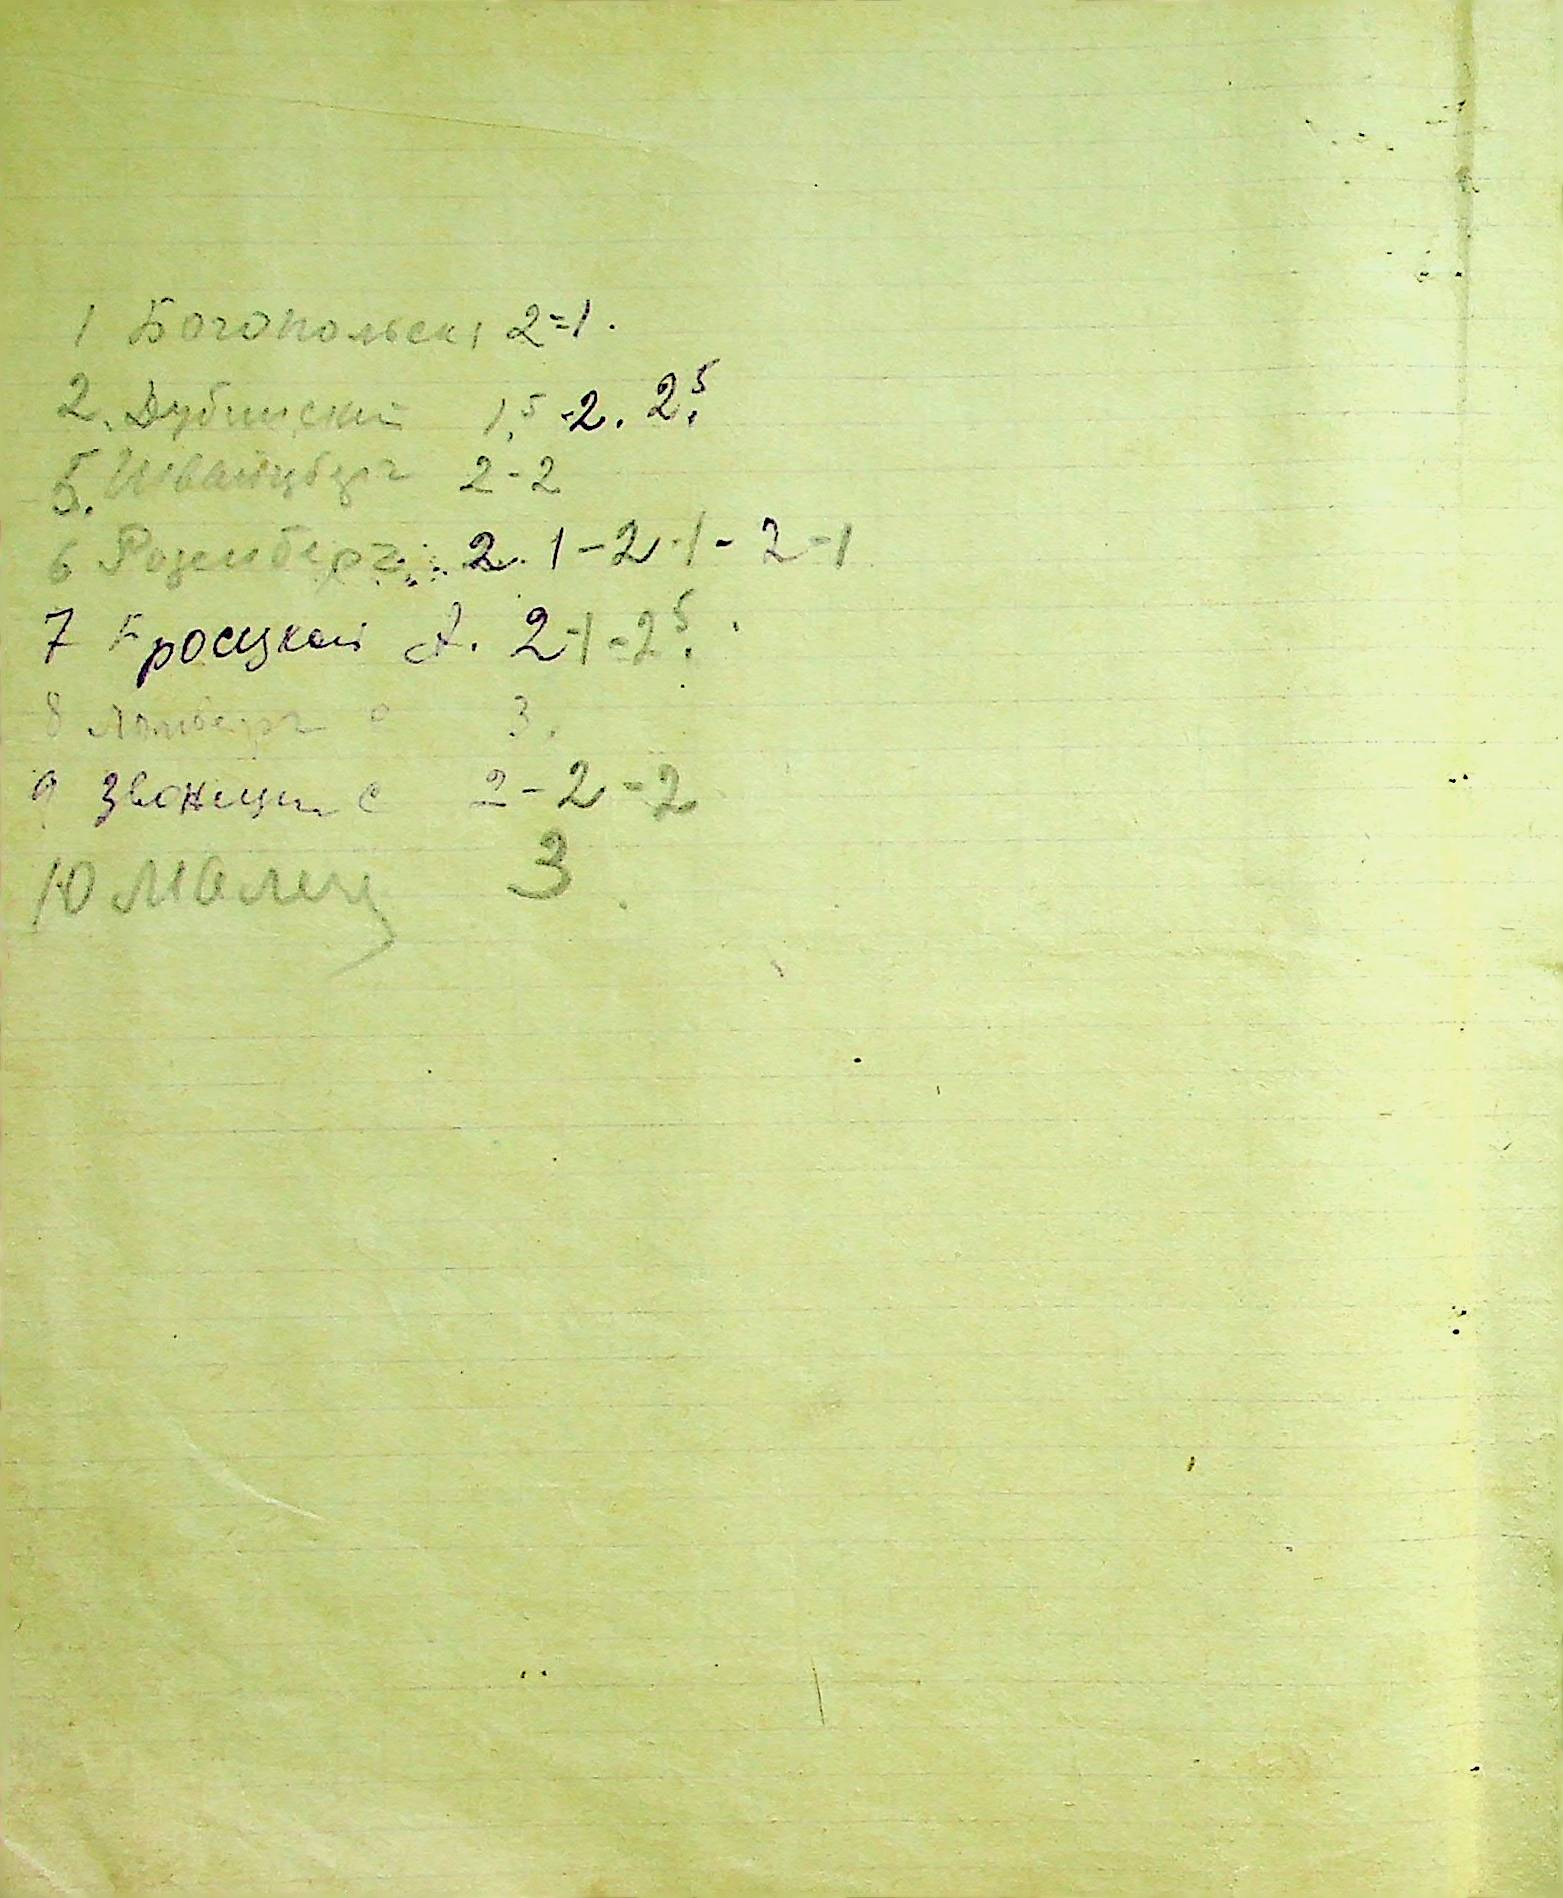 1 Богопольскі 2=1.
2. Дубинский 1,5 -2. 2,5
5. Швайцберг 2-2
6 Розенберг 2. 1-2-1-2-1
7 Бросцкий А. 2-1-2,5
8 с 3.
9 Звоницки с 2-2-2
10 Малец 3